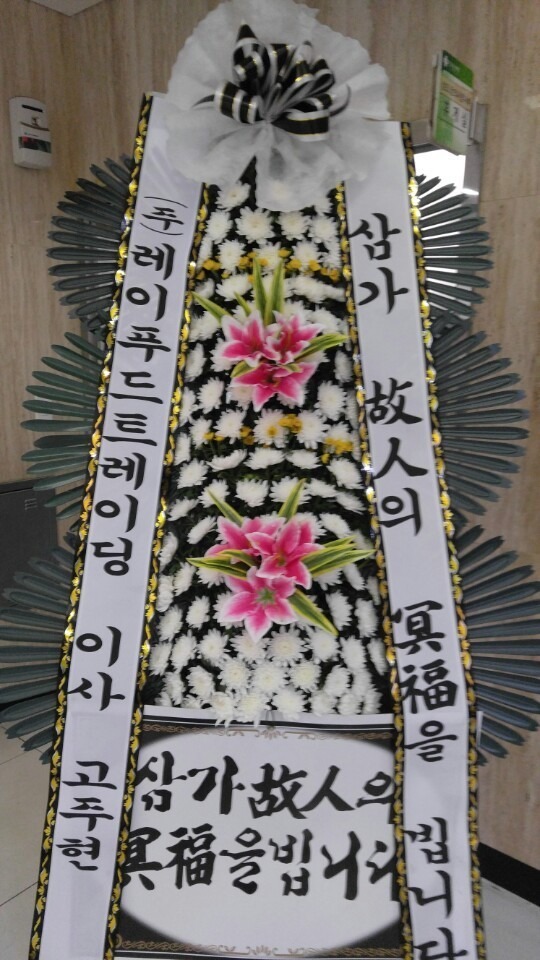 (주)레이푸드트레이딩 이사 고주현
삼가 故人의 冥福을 빕니다
삼가 故人의
冥福을 빕니다